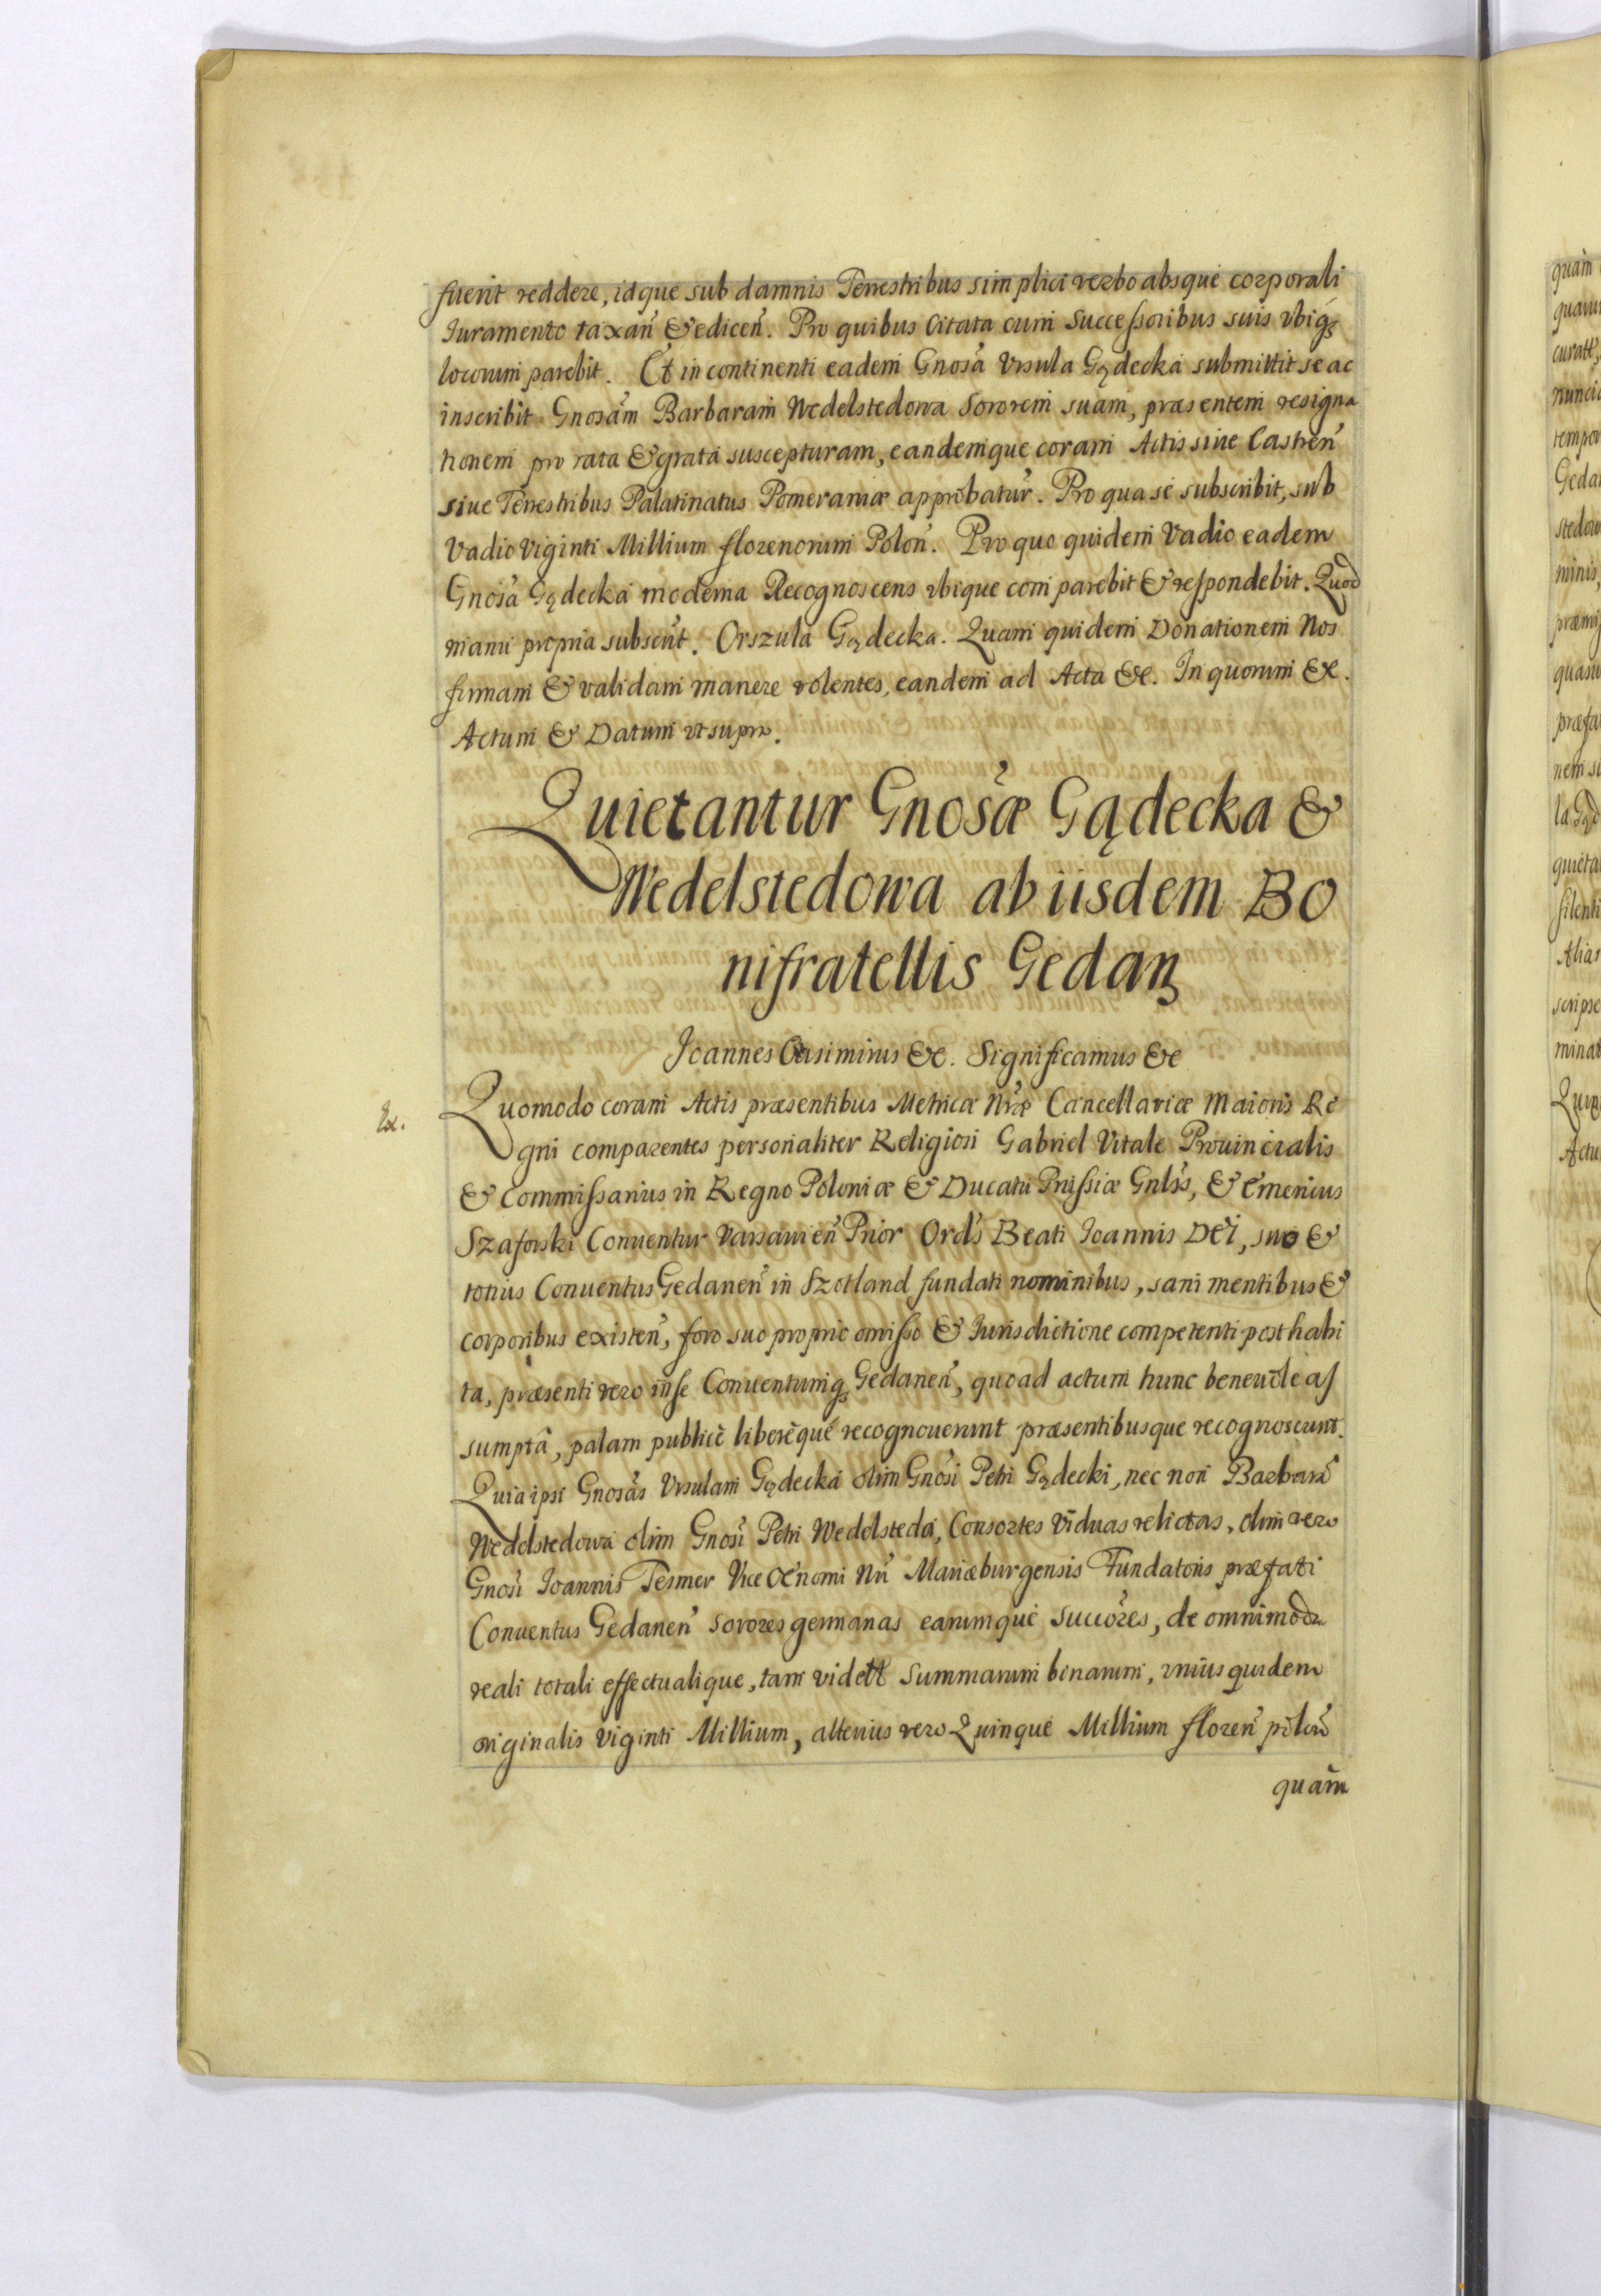 fuerit reddere, idque sub damnis Terrestribus simplici verbo absque corporali
Iuramento taxań & ediceń. Pro quibus citata cum Successoribus suis vbiq3
locorum parebit. Et in continenti eadem Gnosa Vrsula Gądecka submittit se ac
inscribit Gnosam Barbaram Wedelstedowa Sororem suam, præsentem resigna
tionem pro rata & grata suscepturam, eandemque coram Actis siue Castreń
siue Terrestribus Palatinatus Pomeraniæ approbatur. Pro qua se subscribit, sub
Vadio Viginti Millium florenorum Poloń. Pro quo quidem Vadio eadem
Gnosa Gądecka moderna Recognoscens vbique comparebit & respondebit. Quod
manu propria subscrit. Orszula Gądecka. Quam quidem Donationem Nos
firmam & validam manere volentes, eandem ad Acta &c. In quorum &c.
Actum & Datum vt supra.
Quietantur Gnosæ Gądecka &
Wedelstedowa ab iisdem Bo
nifratellis Gedań
Ioannes Casimirus &c. Significamus &c
Ex.
Quomodo coram Actis præsentibus Metricæ Nræ Cancellariæ Maioris Re
gni comparentes personaliter Religiosi Gabriel Vitale Prouincialis
& Commissarius in Regno Poloniæ & Ducatu Prussiæ Gnlis, & Emericus
Szaforski Conuentus Varsauień Prior Ordis Beati Ioannis Dei, suo &
totius Conuentus Gedaneń in Szotland fundati nominibus, sani mentibus &
corporibus existeń, foro suo proprio omisso & Iurisdictione competenti posthabi
ta, præsenti vero in se Conuentumq3 Gedaneń, quoad actum hunc beneuole as
sumpta, palam publicè liberèque recognouerunt præsentibusque recognoscunt.
Quia ipsi Gnosas Vrsulam Gądecka olim Gnosi Petri Gądecki, nec non Barbara
Wedelstedowa olim Gnosi Petri Wedelsteda, Consortes Viduas relictas, olim vero
Gnosi Ioannis Tesmer Vice Œnomi Nri Mariæburgensis Fundatoris præfati
Conuentus Gedaneń sorores germanas earumque succores, de omnimoda
reali totali effectualique, tam vidett Summarum binarum, vnius quidem
originalis Viginti Millium, alterius vero Quinque Millium floreń poloń
quam